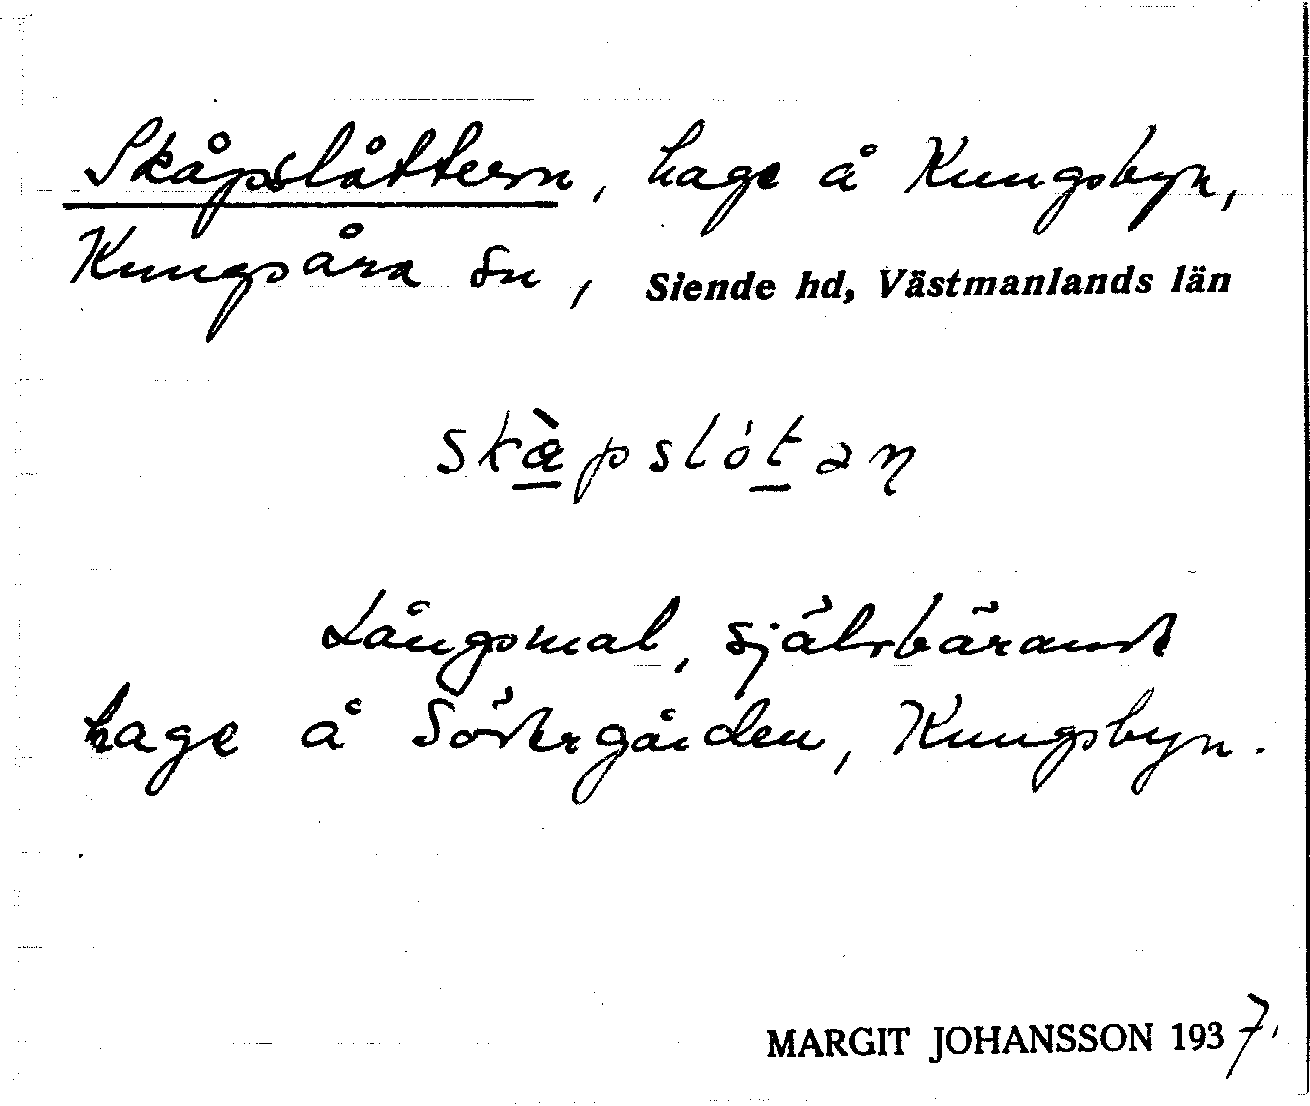 Skåpslåttern, hage å Kungsbyn,
Kungsåra sn, Siende hd, Västmanlands län
skæ̀pslótaɳ
Långsmal, självbärand
hage å Södergården, Kungsbyn.
MARGIT JOHANSSON 1937.